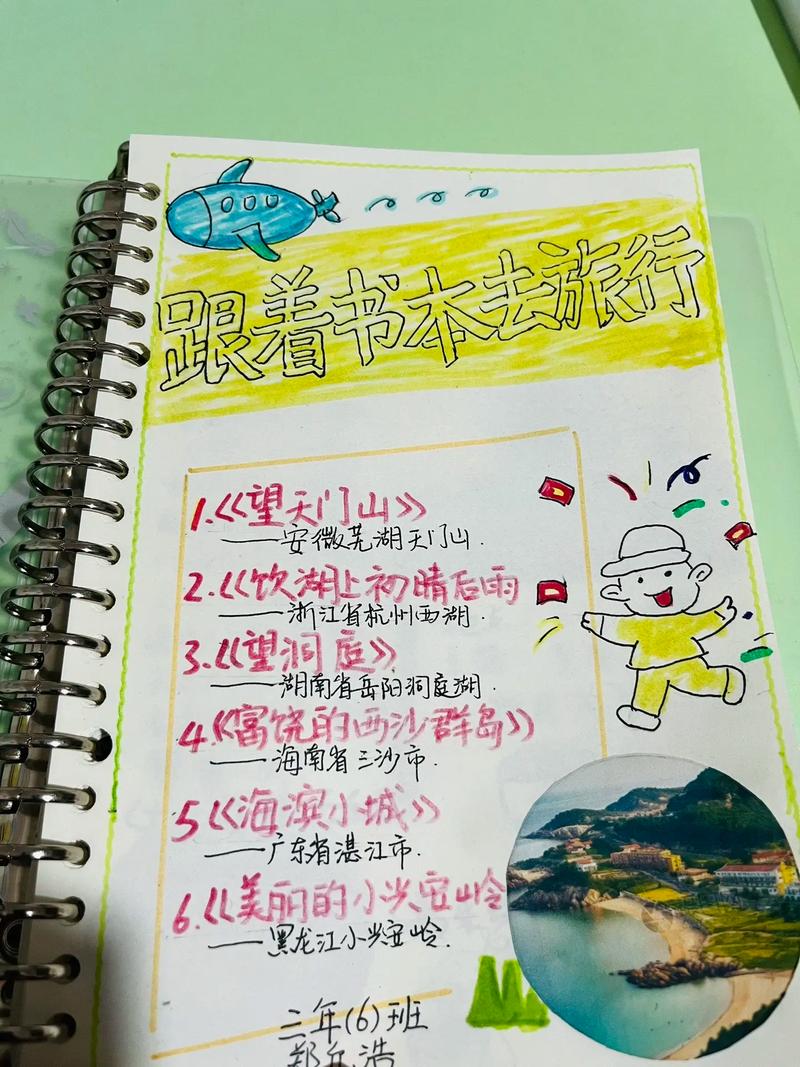 跟着书本去旅行
1.《望天门山》
——安微芜湖天门山.
2.《饮湖上初晴后雨
——浙江省杭州西湖.
3.《望洞庭》
——湖南省岳阳洞庭湖.
4.《富饶的西沙群岛》
——海南省三沙市.
5《海滨小城》
——广东省湛江市.
6.《美丽的小兴安岭
——黑龙江小兴安岭.
三年(6)班